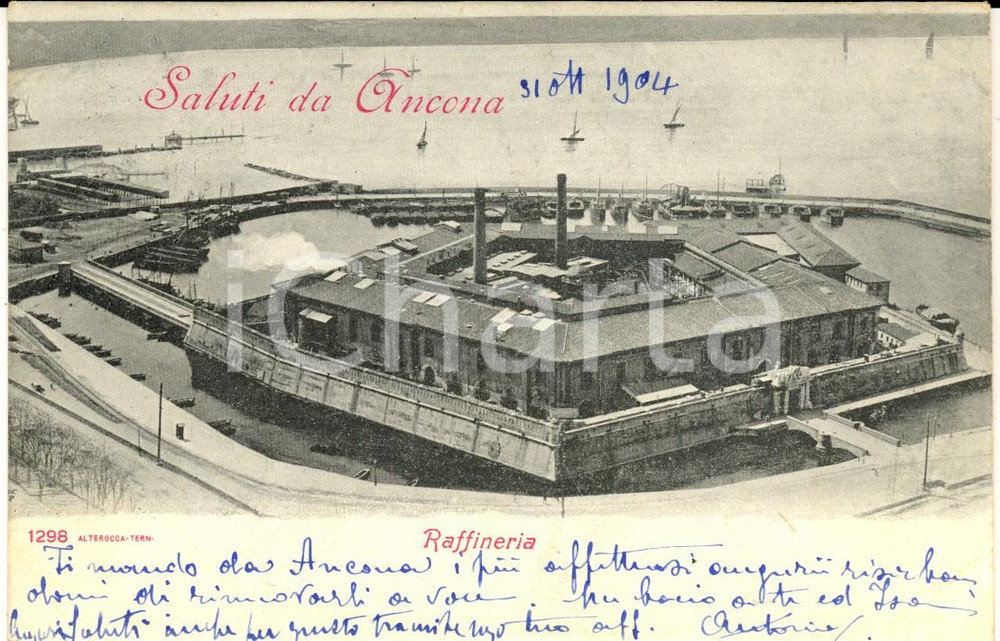 Saluti da Ancona 31 ott 1904
iCharta
1298 ALTEROCCA-TERNI
Raffineria
Ti mando da Ancona i più affettuosi augurii riserban
domi di rinnovarli a voce. Un bacio a te ed
Saluti anche per questo tramite tuo aff.